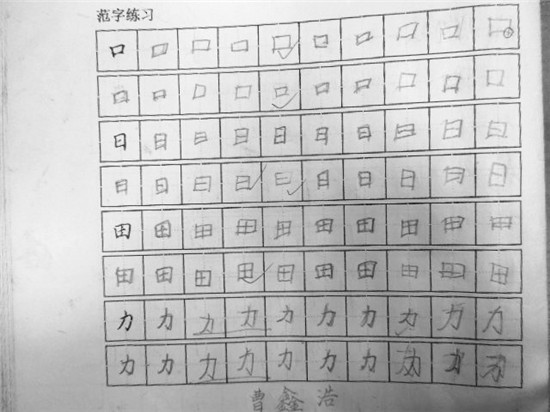 范字练习
口 口 口 口 口 口 口 口 口 口
口 口 口 口 口 口 口 口 口 口
日 日 日 日 日 日 日 日 日 日
日 日 日 日 日 日 日 日 日 日
田 田 田 田 田 田 田 田 田 田
田 田 田 田 田 田 田 田 田 田
力 力 力 力 力 力 力 力 力 力
力 力 力 力 力 力 力 力 力 力
曹鑫浩